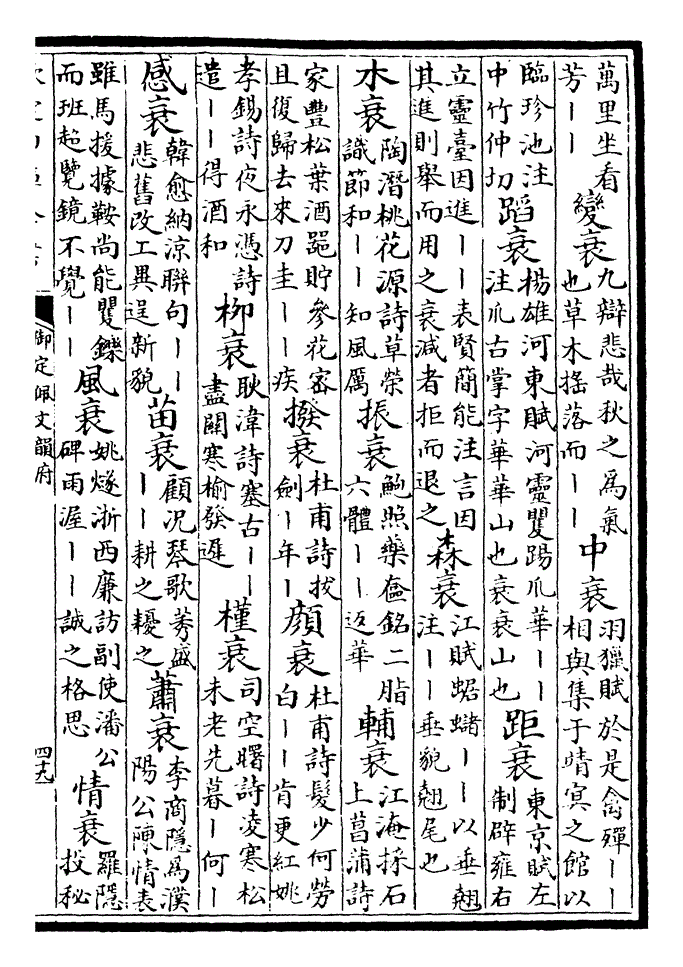 萬里坐看芳丨丨 變衰 九辯悲哉秋之為氣也草木搖落而丨丨 中衰 羽獵賦於是禽殫丨丨相與集于靖冥之館以
臨珍池注中竹仲切 蹈衰 楊雄河東賦河靈矍踢爪華丨丨注爪古掌字華華山也衰衰山也 距衰 東京賦左制辟雍右
立靈臺因進丨丨表賢簡能注言因其進則舉而用之衰減者拒而退之 森衰 江賦蜛蝫丨丨以垂翹注丨丨垂貌翹尾也
木衰 陶潛桃花源詩草榮識節和丨丨知風厲 振衰 鮑照藥奩銘二脂六體丨丨返華 輔衰 江淹採石上菖蒲詩
家豐松葉酒器貯參花蜜且復歸去來刀圭丨丨疾 撥衰 杜甫詩拔劍丨年丨 顏衰 杜甫詩髮少何勞白丨丨肯更紅姚
孝錫詩夜永憑詩遣丨丨得酒和 柳衰 耿湋詩塞古丨丨盡關寒榆發遲 槿衰 司空曙詩凌寒松未老先暮丨何丨
感衰 韓愈納涼聯句丨丨悲舊改工異逞新貌 苗衰 顧況琴歌莠盛丨丨耕之耰之 蕭衰 李商隱為濮陽公陳情表
雖馬援據鞍尚能矍鑠而班超覽鏡不覺丨丨 風衰 姚燧浙西廉訪副使潘公碑雨渥丨丨誠之格思 情衰 羅隱投秘
御定佩文韻府 四十九